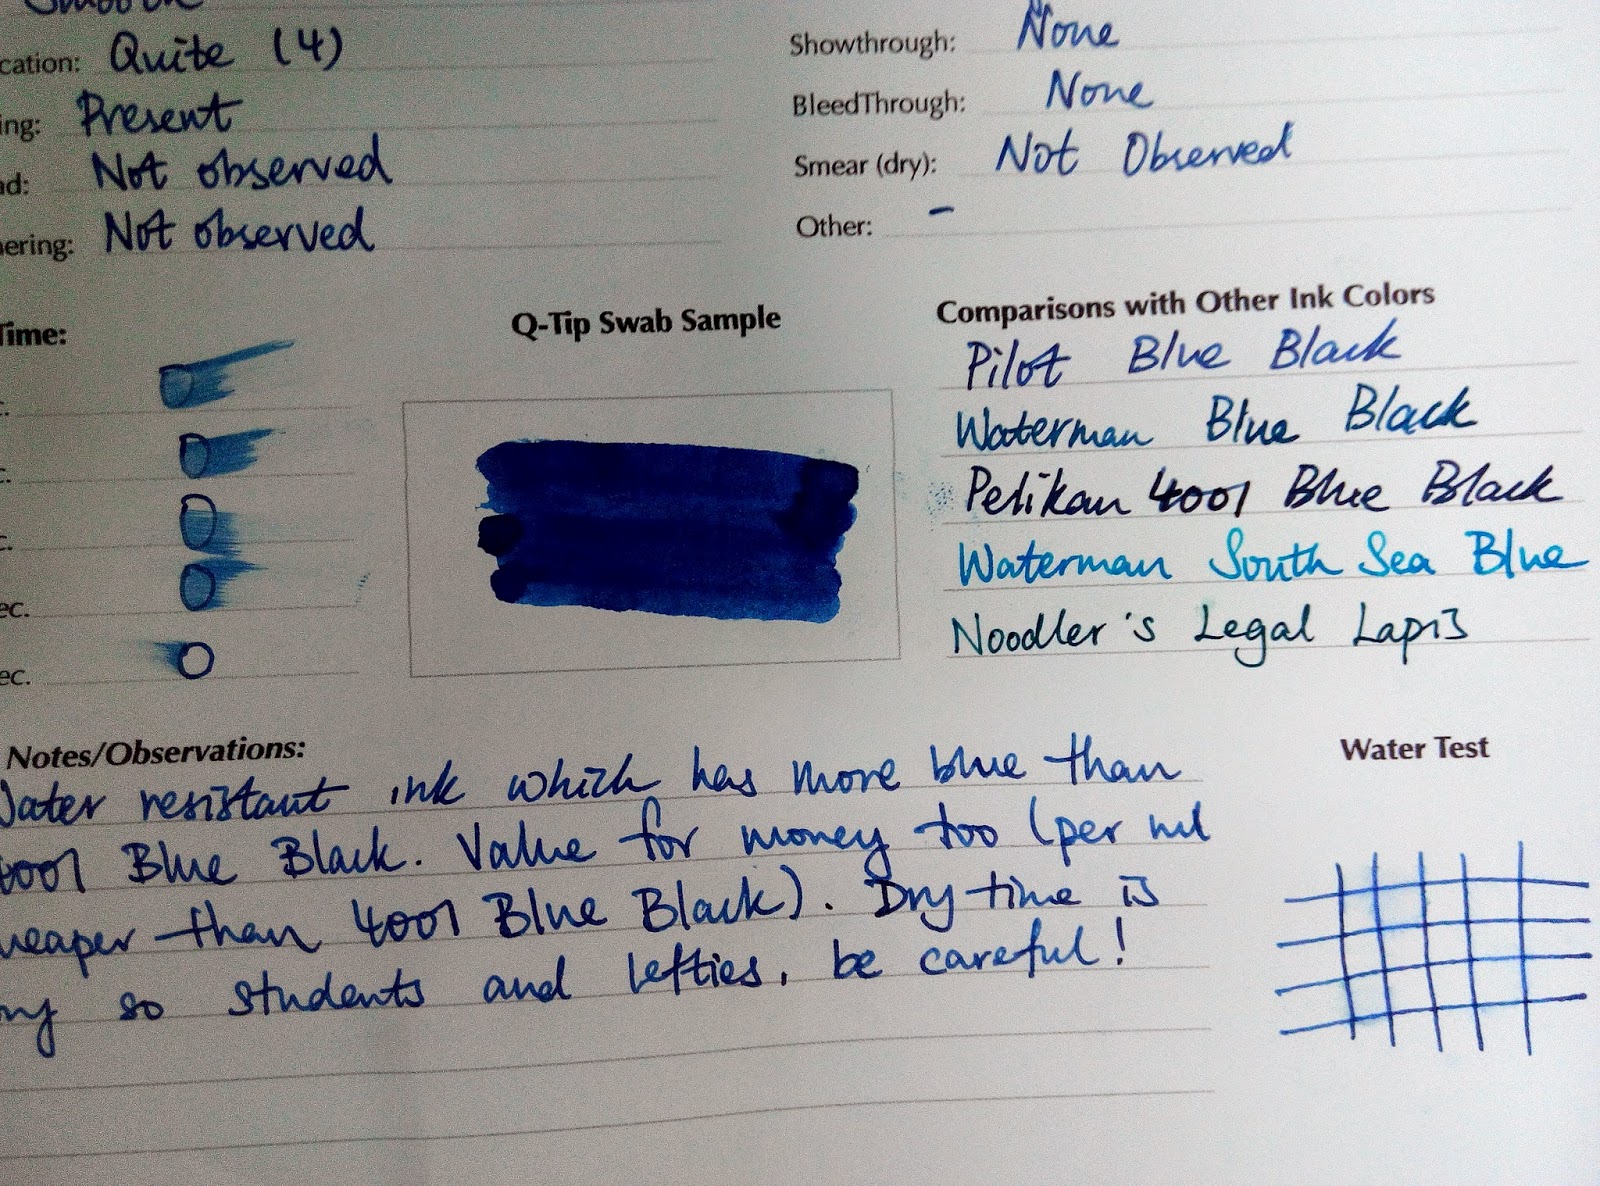 Smooth
cation: Quite (4)
Showthrough: None
ing: Present
BleedThrough: None
ad: Not observed
Smear (dry): Not Observed
ering: Not observed
Other: -
Time:
Q-Tip Swab Sample
Comparisons with Other Ink Colors
Pilot Blue Black
c.
Waterman Blue Black
c.
Pelikan 4001 Blue Black
c.
Waterman South Sea Blue
ec.
Noodler's Legal Lapis
ec.
Notes/Observations:
Water Test
Water resistant ink which has more blue than
4001 Blue Black. Value for money too (per ml
heaper than 4001 Blue Black). Dry time is
ong so students and lefties, be careful!